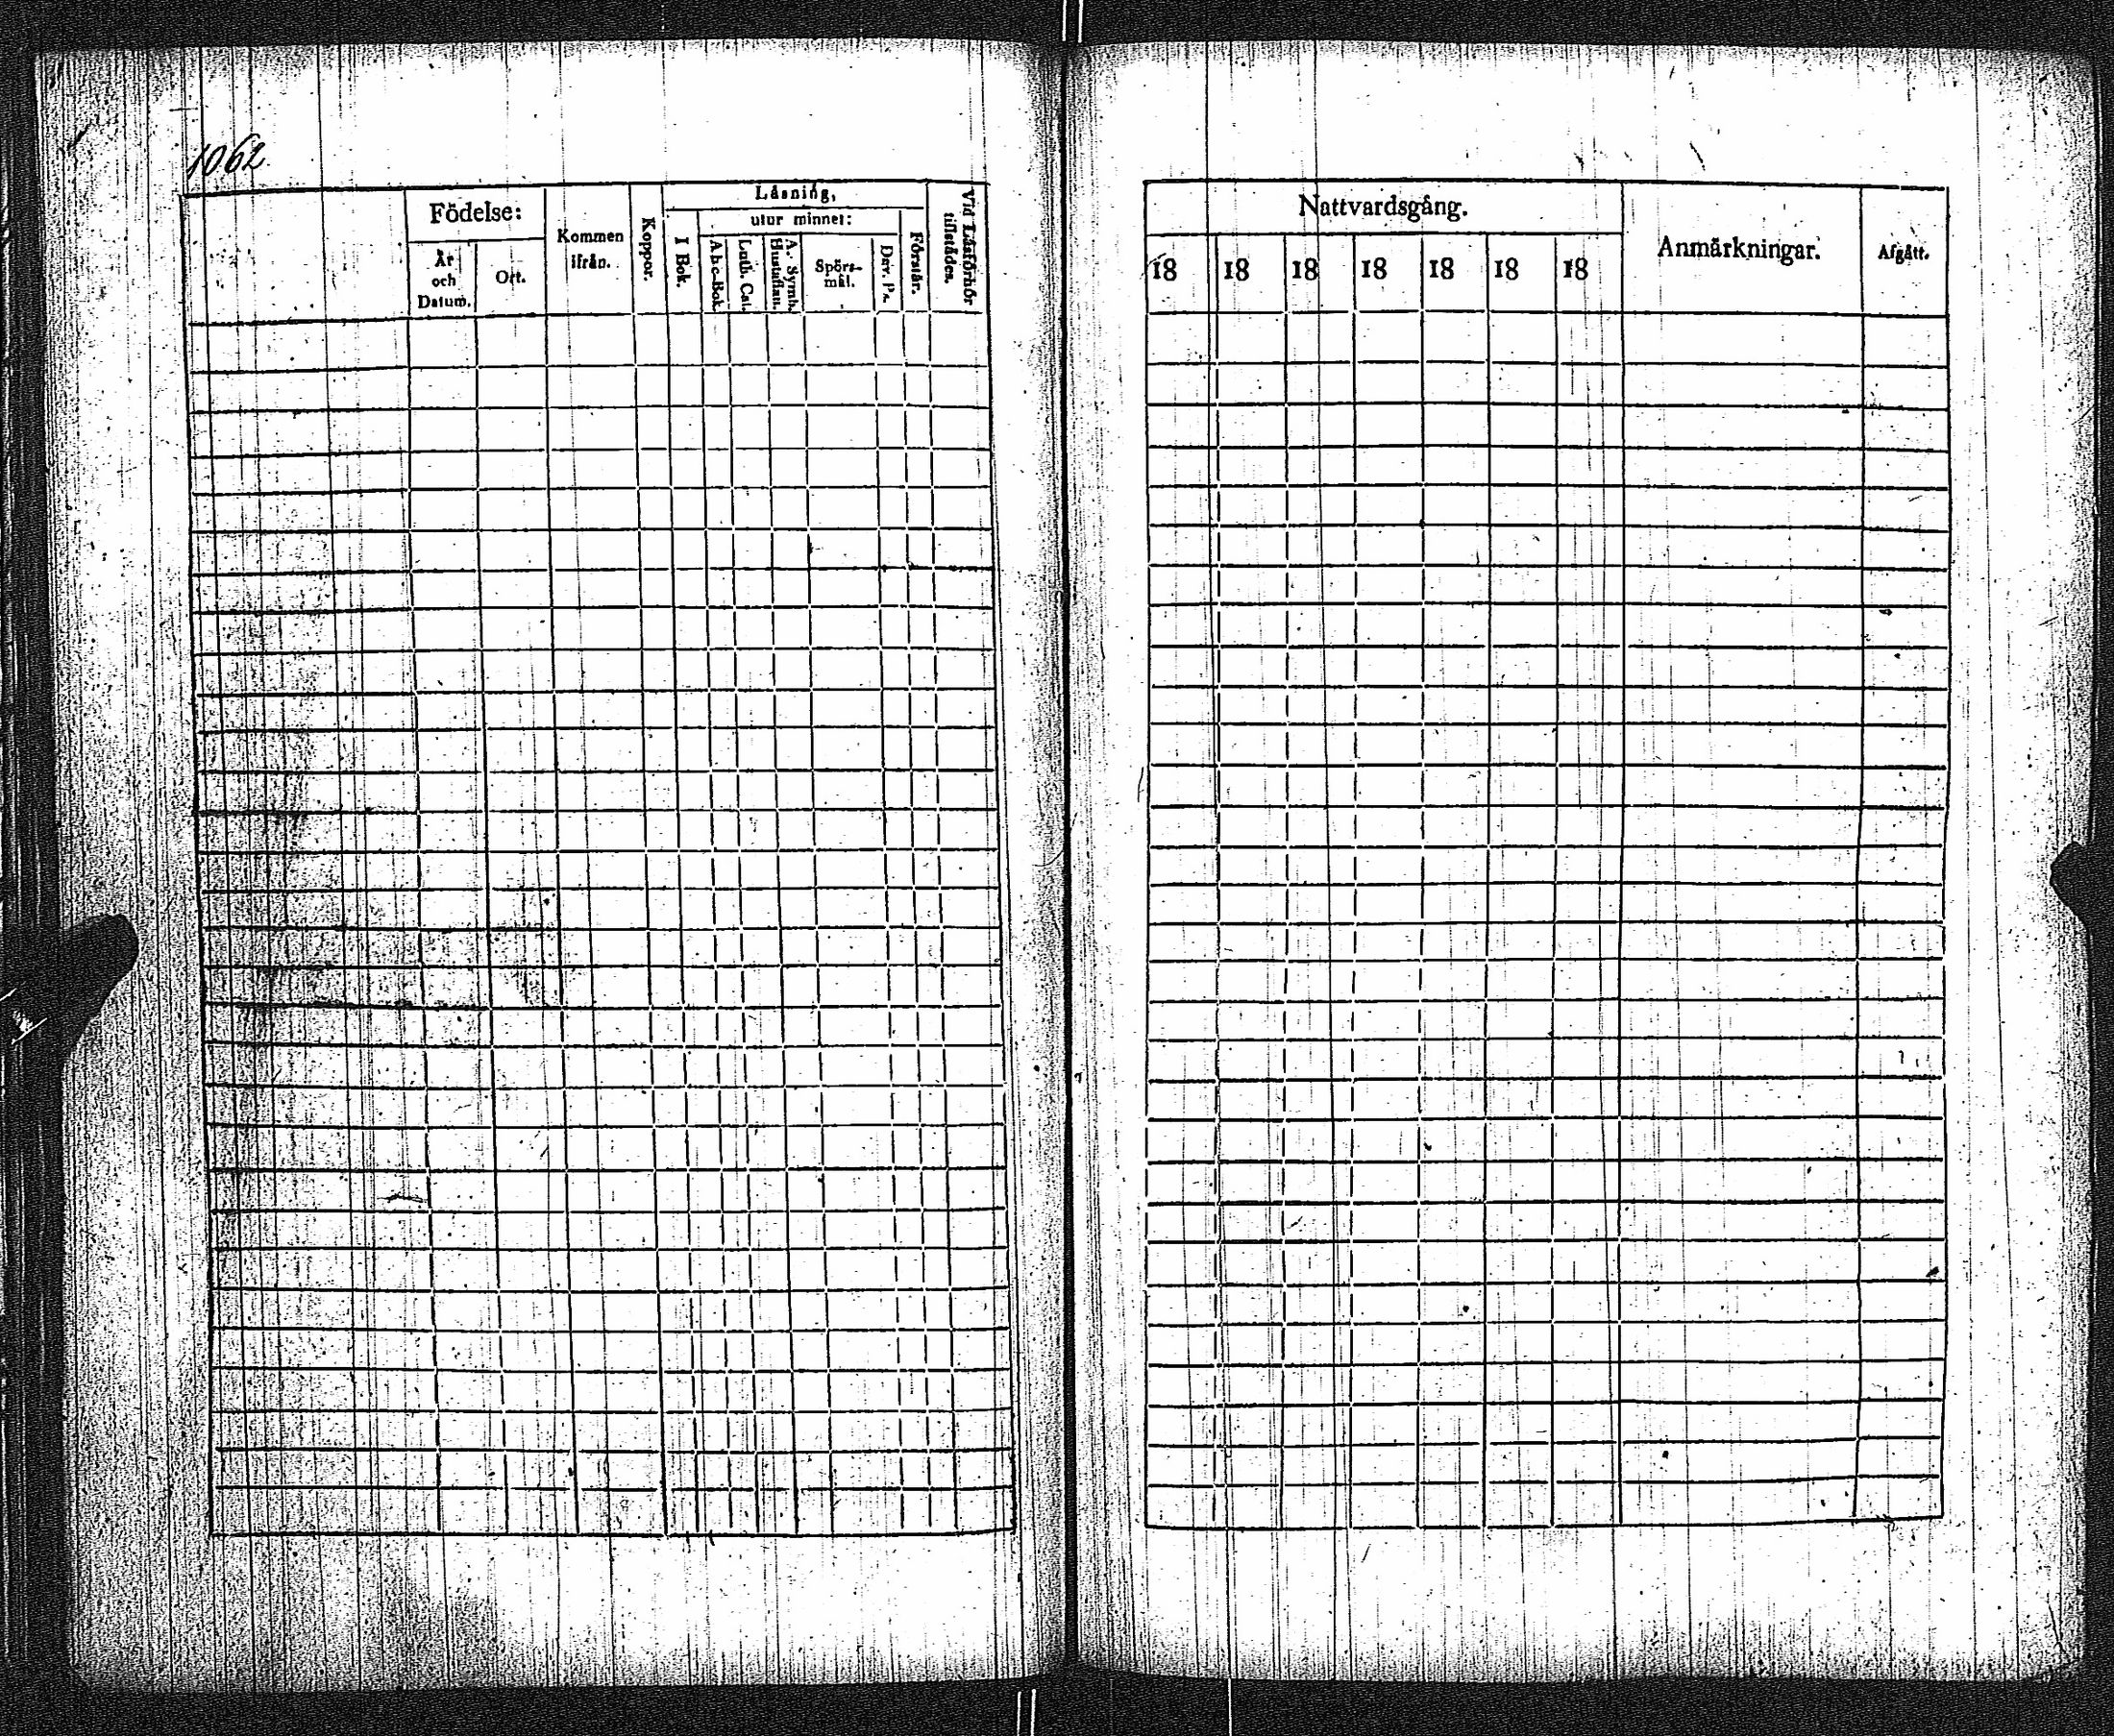 1062
Födelse:
År
och
Datum.
Ort.
Kommen
ifrån.
Koppor.
Läsning,
I Bok.
utur minnet:
A b c-Bok.
Luth. Cat.
A. Symb.
Hustaflan.
Spörs-
mål.
Dav. Ps.
Förstår.
Vid Läsförhör
tillstädes.
Nattvardsgång.
18 18 18 18 18 18 18
Anmärkningar.
Afgått.